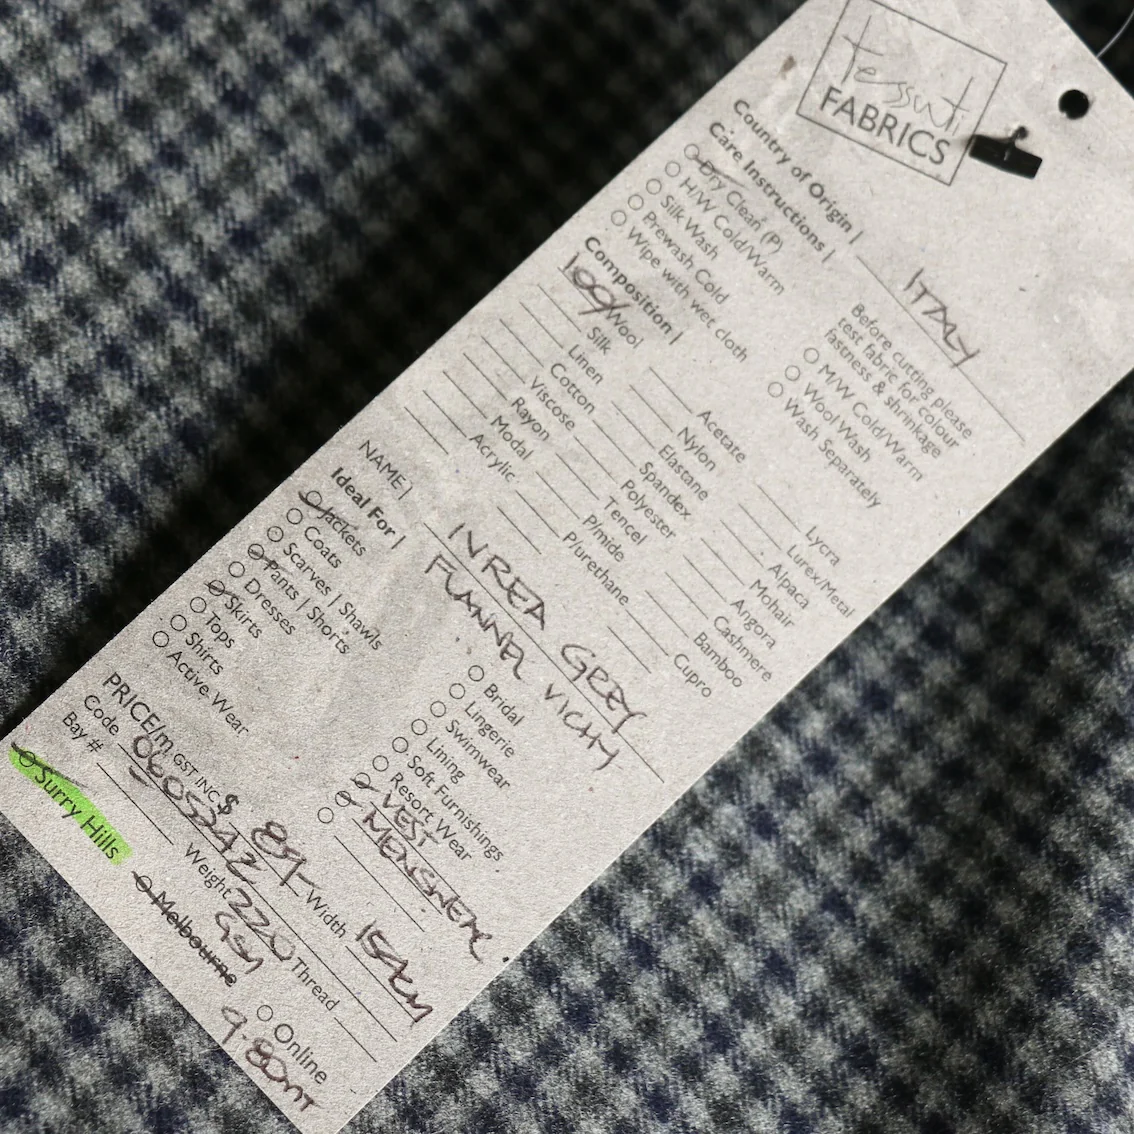 tessuti
FABRICS
Country of Origin | ITALY
Care Instructions |
Dry Clean (P)
H/W Cold/Warm
Silk Wash
Prewash Cold
Wipe with wet cloth
Before cutting please
test fabric for colour
fastness & shrinkage
M/W Cold/Warm
Wool Wash
Wash Separately
Composition |
100% Wool
Silk
Linen
Cotton
Viscose
Rayon
Modal
Acrylic
Acetate
Nylon
Elastane
Spandex
Polyester
Tencel
P/mide
P/urethane
Lycra
Lurex/Metal
Alpaca
Mohair
Angora
Cashmere
Bamboo
Cupro
NAME | IVREA GREY
FLANNEL VICHY
Ideal For |
Jackets
Coats
Scarves | Shawls
Pants | Shorts
Dresses
Skirts
Tops
Shirts
Active Wear
Bridal
Lingerie
Swimwear
Lining
Soft Furnishings
Resort Wear
VEST
MENSWEAR
PRICE/m GST INC $ 89- Width 15cm
Code Weight 220 GSM Thread
Bay #
Surry Hills
Melbourne
Online
9.80MT